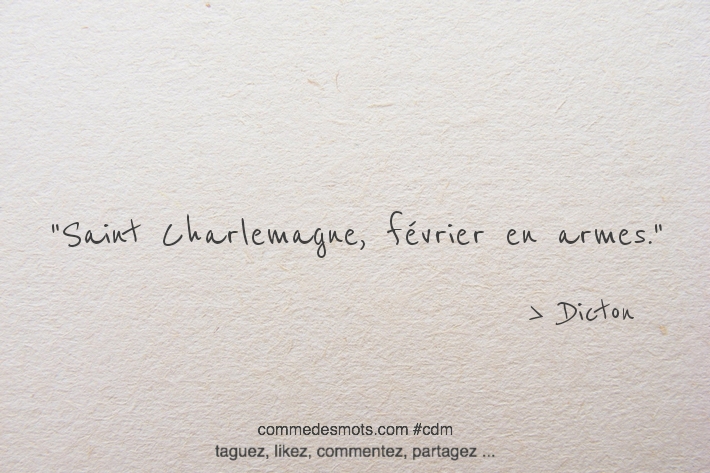 "Saint Charlemagne, février en armes."
> Dicton
commedesmots.com #cdm
taguez, likez, commentez, partagez ...